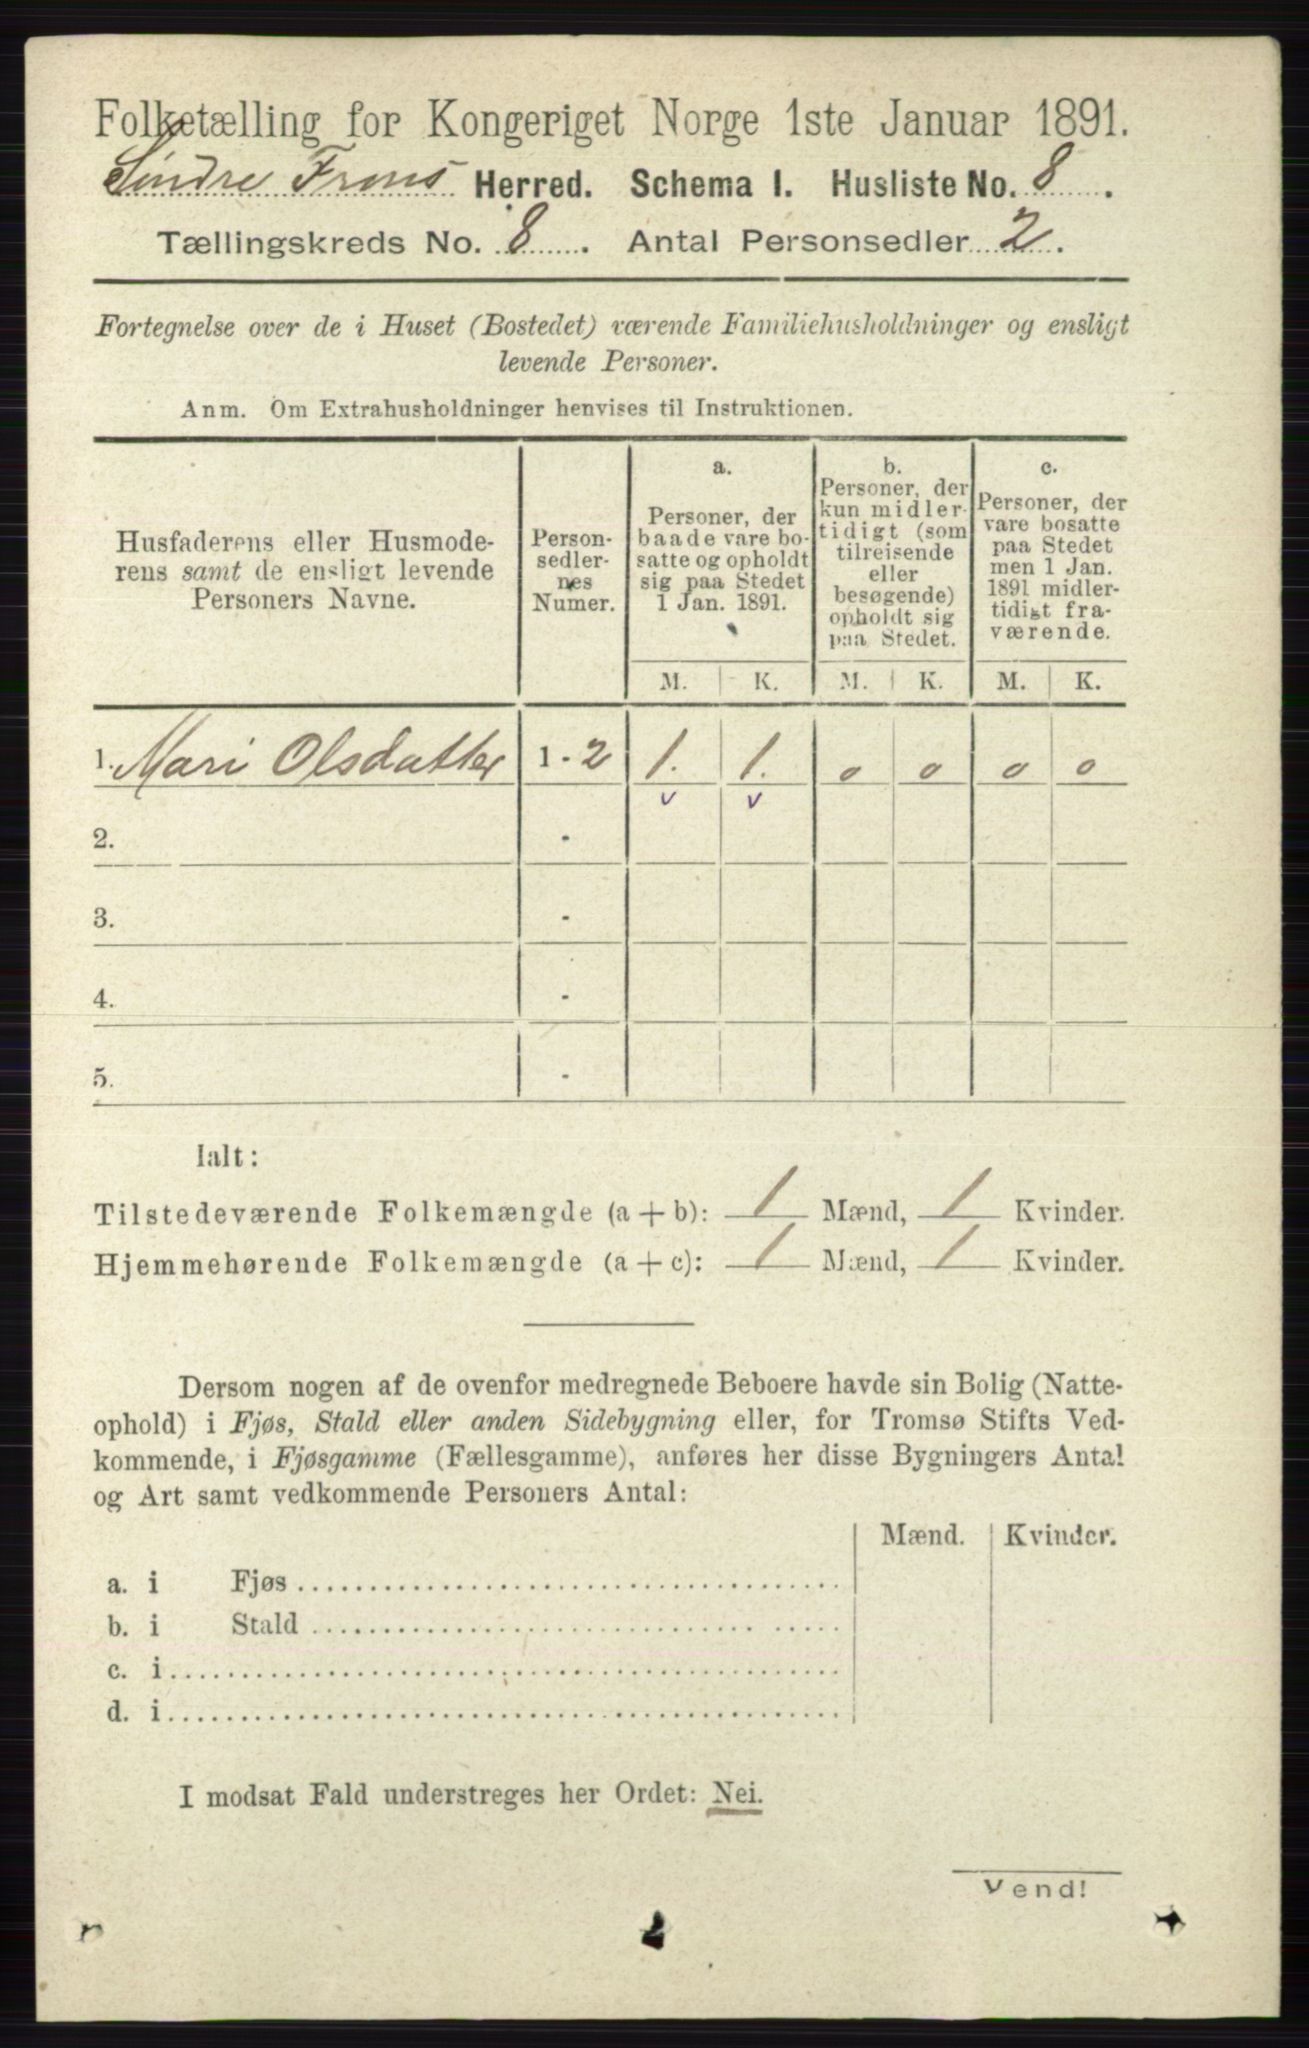 Folketælling for Kongeriget Norge 1ste Januar 1891.
Søndre Frons Herred. Schema I. Husliste No. 8.
Tællingskreds No. 8. Antal Personsedler 2.
Fortegnelse over de i Huset (Bostedet) værende Familiehusholdninger og ensligt
levende Personer.
Anm. Om Extrahusholdninger henvises til Instruktionen.
Husfaderens eller Husmode-
rens samt de ensligt levende
Personers Navne.
Person-
sedler-
nes
Numer.
a.
Personer, der
baade vare bo-
satte og opholdt
sig paa Stedet
1 Jan. 1891.
b.
Personer, der
kun midler-
tidigt (som
tilreisende
eller
besøgende)
opholdt sig
paa Stedet.
c.
Personer, der
vare bosatte
paa Stedet
men 1 Jan.
1891 midler-
tidigt fra-
værende.
M. K. M. K. M. K.
1. Mari Olsdatter 1 - 2 1. 1. 0 0 0 0
v v
2. -
3. -
4. -
5. -
Ialt:
Tilstedeværende Folkemængde (a + b): 1 Mænd, 1 Kvinder.
Hjemmehørende Folkemængde (a + c): 1 Mænd, 1 Kvinder.
Dersom nogen af de ovenfor medregnede Beboere havde sin Bolig (Natte-
ophold) i Fjøs, Stald eller anden Sidebygning eller, for Tromsø Stifts Ved-
kommende, i Fjøsgamme (Fællesgamme), anføres her disse Bygningers Antal
og Art samt vedkommende Personers Antal:
Mænd. Kvinder.
a. i Fjøs
b. i Stald
c. i
d. i
I modsat Fald understreges her Ordet: Nei.
Vend!